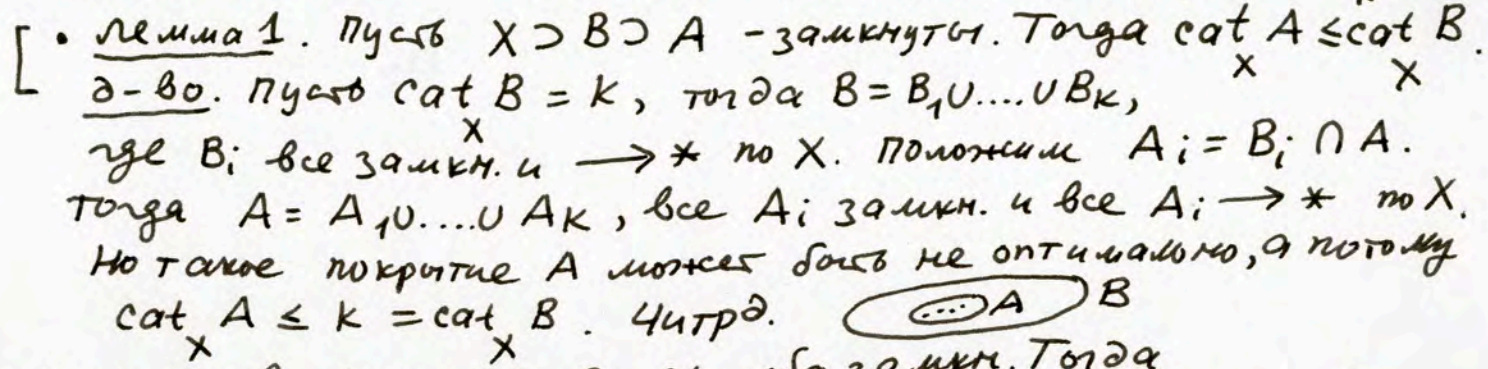 • Лемма 1. Пусть X ⊃ B ⊃ A - замкнуты. Тогда cat_X A ≤ cat_X B.
д-во. Пусть cat_X B = k, тогда B = B₁∪....∪Bₖ,
где Bᵢ все замкн. и ⟶ * по X. Положим Aᵢ = Bᵢ ∩ A.
Тогда A = A₁∪....∪Aₖ, все Aᵢ замкн. и все Aᵢ ⟶ * по X.
Но такое покрытие A может быть не оптимально, а потому
cat_X A ≤ k = cat_X B. Читрд. A B
замкн. Тогда